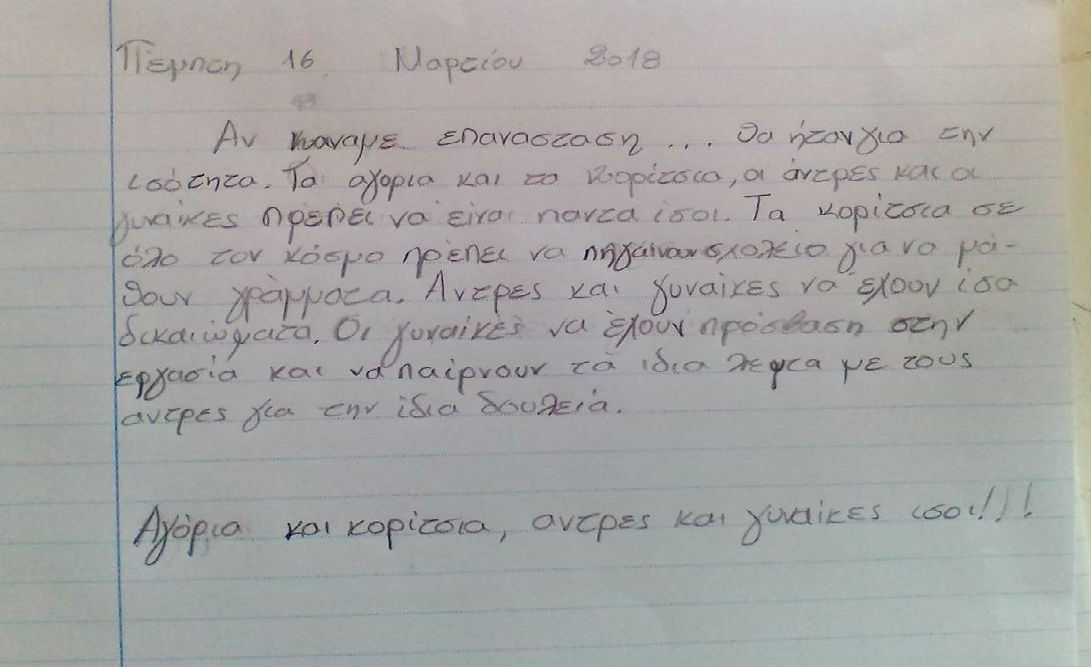 Πεμπτη 16 Μαρτίου 2018
Αν καναμε επανασταση ... θα ήταν για την
ισότητα. Τα αγορια και τα κορίτσια, οι άντρες και οι
γυναίκες πρέπει να είναι παντα ίσοι. Τα κορίτσια σε
όλο τον κόσμο πρέπει να πηγαίναν σχολείο για να μά-
θουν γράμματα. Αντρες και γυναίκες να έχουν ίσα
δικαιώματα. Οι γυναίκες να έχουν πρόσβαση στην
εργασία και να παίρνουν τα ιδια λεφτα με τους
αντρες για την ίδια δουλειά.
Αγόρια και κορίτσια, αντρες και γυναίκες ισοι!!!